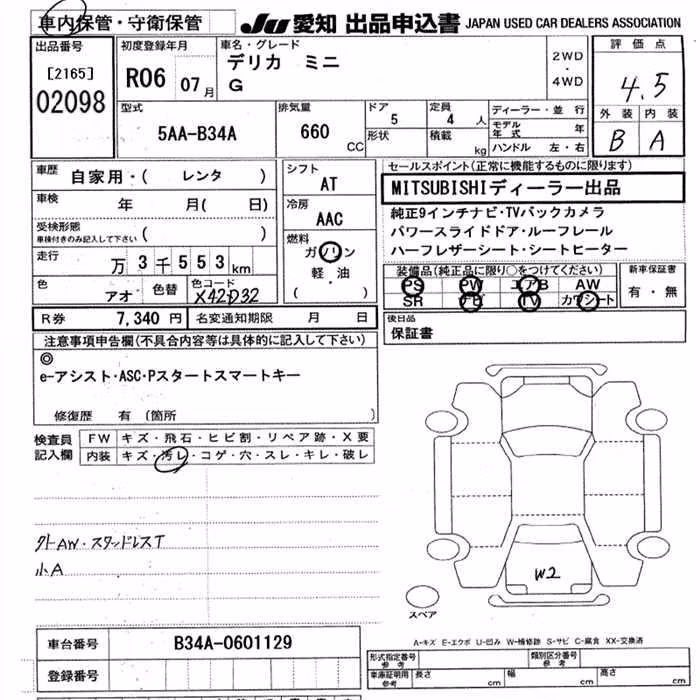 車内保管・守衛保管
JU 愛知 出品申込書 JAPAN USED CAR DEALERS ASSOCIATION
出品番号
[2165]
02098
初度登録年月
R06 07月
車名・グレード
デリカ ミニ
G
2WD
・
4WD
評価点
4.5
外装 内装
B A
型式
5AA-B34A
排気量
660
CC
ドア
5
定員
4 人
形状
積載
kg
ディーラー・並行
モデル年式 年
ハンドル 左・右
車歴
自家用・( レンタ )
車検
年 月( 日)
受検形態
車検付きのみ記入して下さい ( )
走行
万 3 千 5 5 3 km
色
アオ
色替
色コード
X42D32
シフト
AT
冷房
AAC
燃料
ガソリン
軽・油
( )
セールスポイント(正常に機能するものに限ります)
MITSUBISHIディーラー出品
純正9インチナビ・TVバックカメラ
パワースライドドア・ルーフレール
ハーフレザーシート・シートヒーター
装備品(純正品に限り○をつけてください)
PS PW エアB AW
SR ナビ TV カワシート
新車保証書
有・無
R券 7,340 円 名変通知期限 月 日
後日品
保証書
注意事項申告欄(不具合内容等は具体的に記入して下さい)
◎
e-アシスト・ASC・Pスタートスマートキー
修復歴 有 (箇所 )
検査員記入欄
FW キズ・飛石・ヒビ割・リペア跡・X要
内装 キズ・汚レ・コゲ・穴・スレ・キレ・破レ
外AW・スタッドレスT
小A
W2
スペア
A-キズ E-エクボ U-凹み W-補修跡 S-サビ C-腐食 XX-交換済
車台番号 B34A-0601129
登録番号
形式指定番号
参考
類別区分番号
参考
車庫証明用
参考
長さ cm 幅 cm 高さ cm